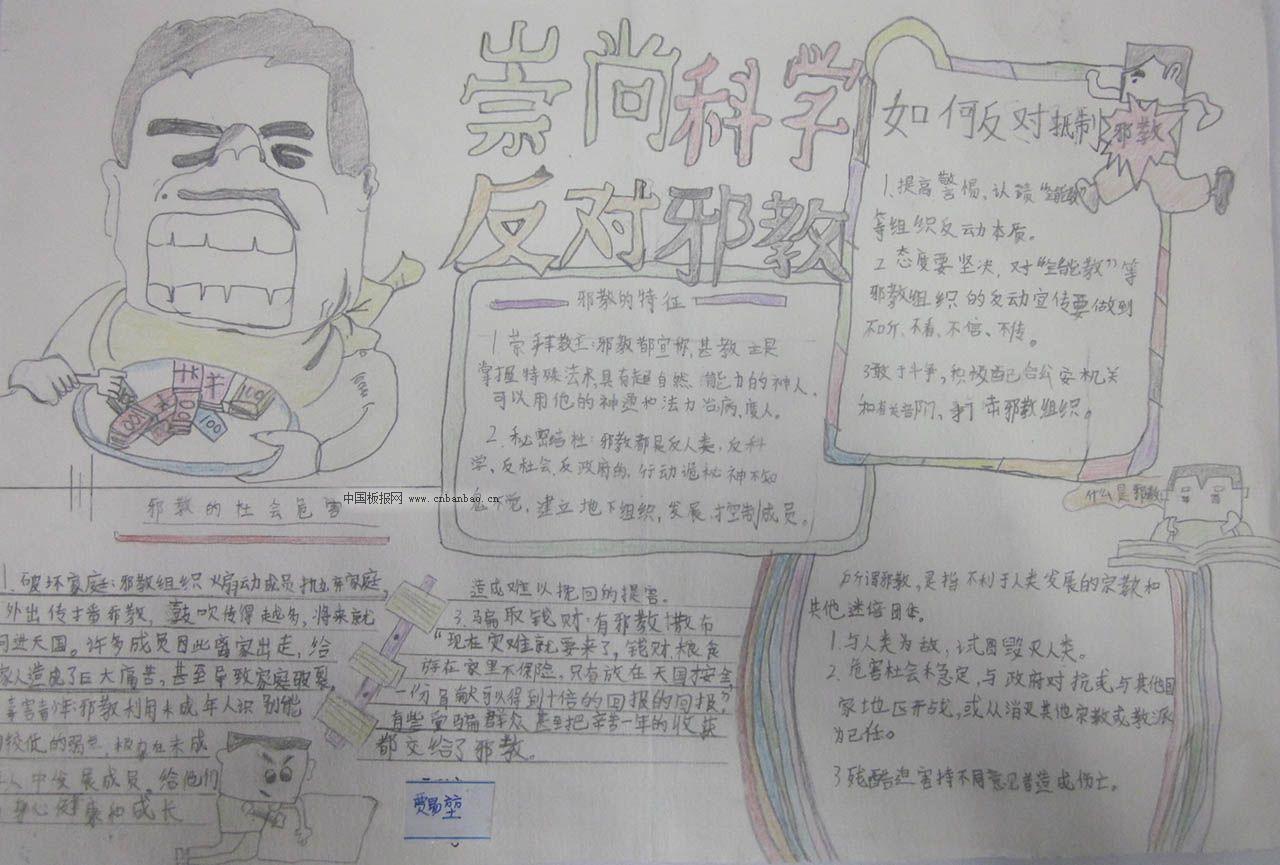 崇尚科学
反对邪教
邪教的特征
1.崇拜教主:邪教都宣称,其教主是
掌握特殊法术,具有超自然、能力的神人,
可以用他的神通和法力治病、度人。
2.秘密结社:邪教都是反人类,反科
学、反社会、反政府的,行动诡秘神不知
鬼不觉,建立地下组织,发展、控制成员。
如何反对抵制邪教
1.提高警惕,认清“全能教”
等组织反动本质。
2态度要坚决,对“全能教”等
邪教组织的反动宣传要做到
不听、不看、不信、不传。
3敢于斗争,积极配合公安机关
和有关部门、打击邪教组织。
中国板报网 www.cnbanbao.cn
邪教的社会危害
1.破坏家庭:邪教组织煽动成员抛弃家庭,
外出传播邪教,鼓吹传得越多,将来就
同进天国。许多成员因此离家出走,给
家人造成了巨大痛苦,甚至导致家庭破裂
毒害青少年:邪教利用未成年人识别能
较低的弱点,极力在未成
人中发展成员,给他们
身心健康和成长
造成难以挽回的损害。
3.骗取钱财:有邪教散布
“现在灾难就要来了,钱财粮食
存在家里不保险,只有放在天国才安全,
一份奉献可以得到十倍的回报的回报”,
有些受骗群众甚至把辛苦一年的收获
都交给了邪教。
贾易堃
什么是邪教
所谓邪教,是指不利于人类发展的宗教和
其他迷信团体。
1.与人类为敌,试图毁灭人类。
2.危害社会和稳定,与政府对抗或与其他国
家地区开战,或从消灭其他宗教或教派
为己任。
3残酷迫害持不同意见者造成伤亡。